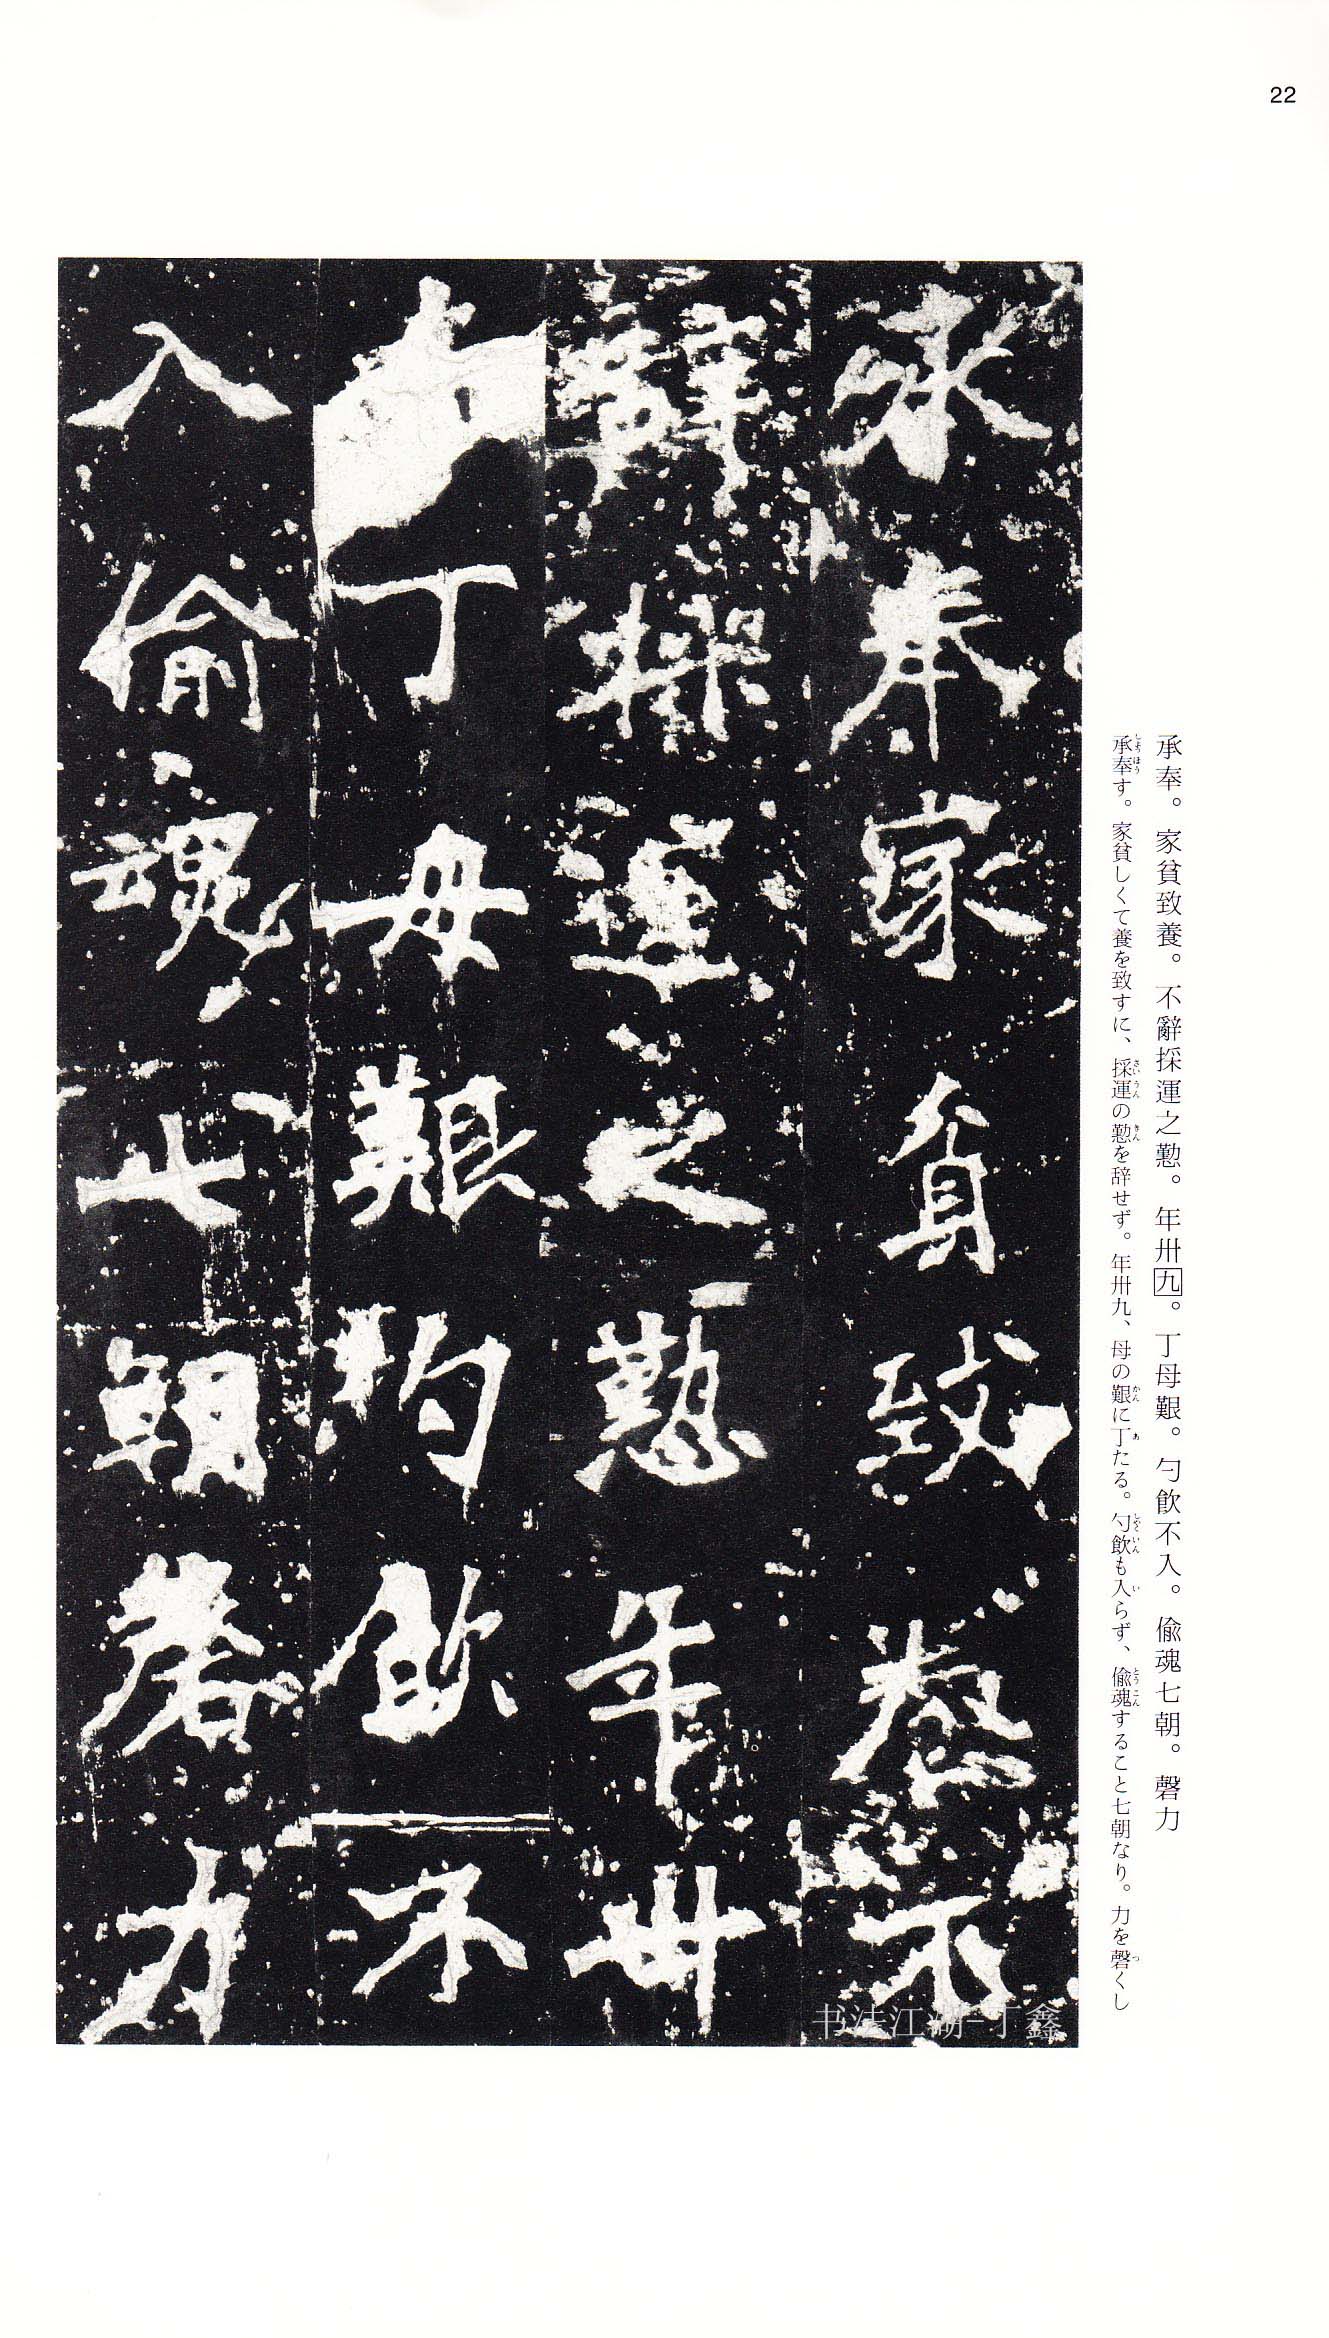 22
承奉。家貧致養。不辭採運之懃。年卅九。丁母艱。勺飲不入。偸魂七朝。磬力
承奉す。家貧しくて養を致すに、採運の懃を辞せず。年卅九、母の艱に丁たる。勺飲も入らず、偸魂すること七朝なり。力を磬くし
承奉家貧致養不
辭採運之懃年卅
九丁母艱勺飲不
入偸魂七朝磬力
书法江湖-丁鑫